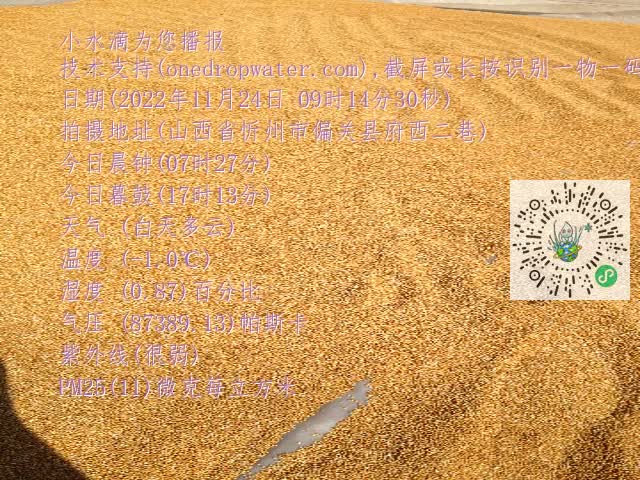 小水滴为您播报
技术支持(onedropwater.com),截屏或长按识别一物一码
日期(2022年11月24日 09时14分30秒)
拍摄地址(山西省忻州市偏关县府西二巷)
今日晨钟(07时27分)
今日暮鼓(17时13分)
天气 (白天多云)
温度 (-1.0℃)
湿度 (0.87)百分比
气压 (87389.13)帕斯卡
紫外线(很弱)
PM25(11)微克每立方米